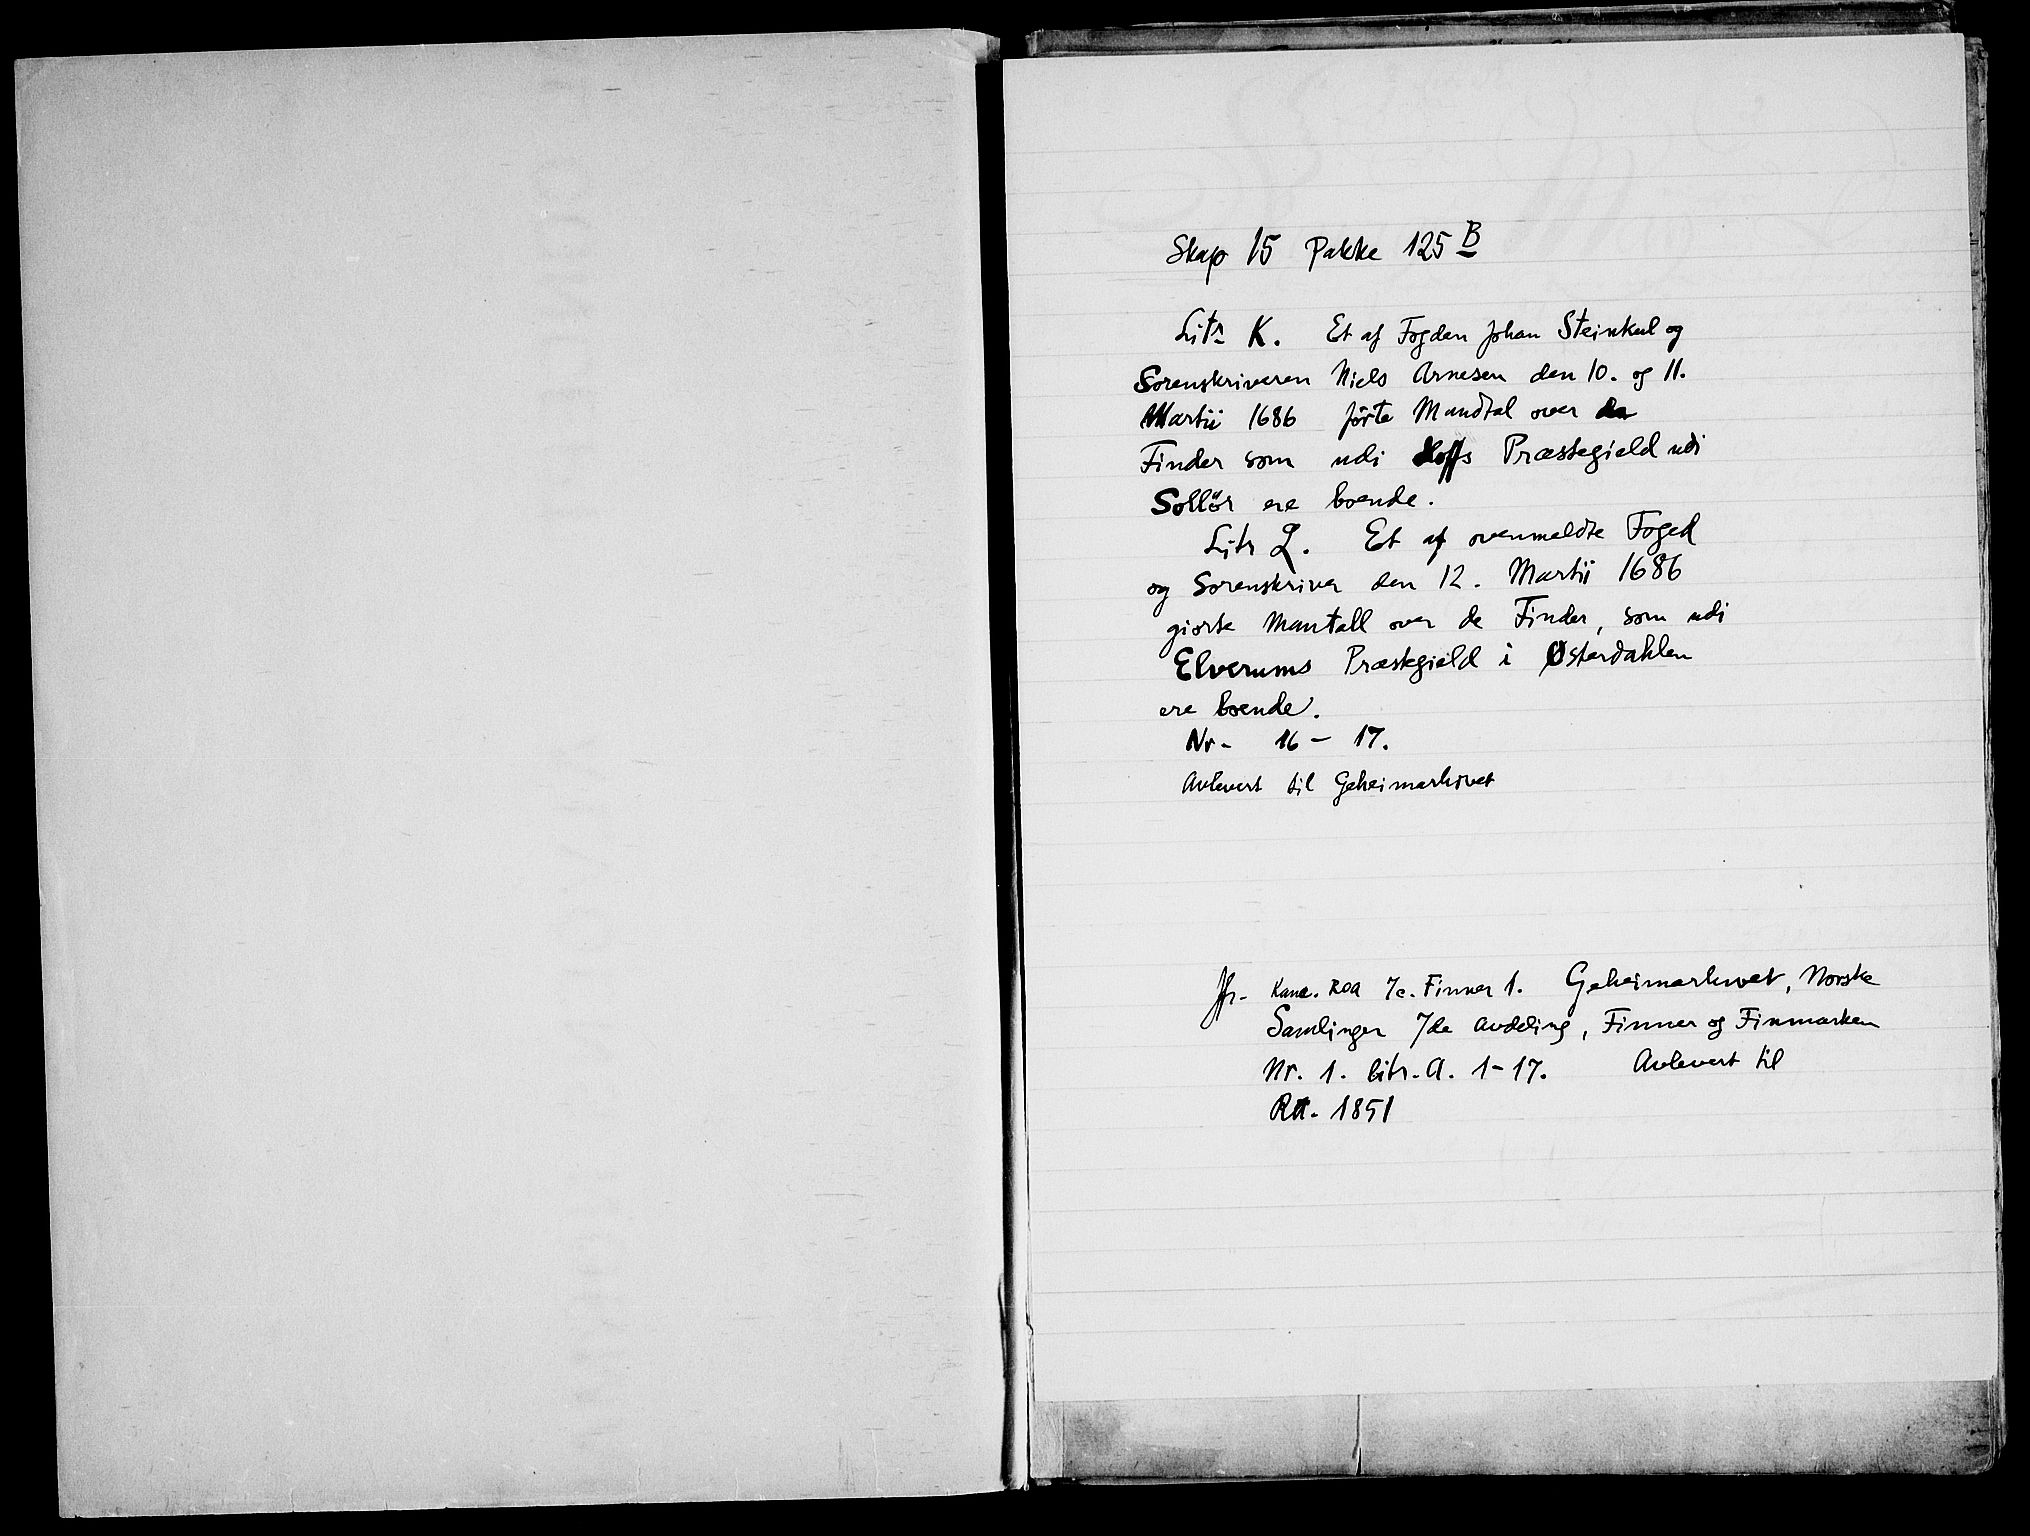 Skap 15 Pakke 125 B
Litr K. Et af Fogden Johan Steinkul og
Sorenskriveren Niels Arnesen den 10. og 11.
Martii 1686 førte Mandtal over de
Finder som udi Hoffs Præstegield udi
Sollör ere boende.
Litr L. Et af ovenmeldte Foged
og Sorenskriver den 12. Martii 1686
giorte Mantall over de Finder, som udi
Elverums Præstegield i Østerdahlen
ere boende.
Nr. 16 - 17.
Avlevert til Geheimarkivet
Jfr. Kanc. Roa 7c. Finner 1. Geheimarkivet, Norske
Samlinger 7de avdeling, Finner og Finmarken
Nr. 1. litr. A. 1-17. Avlevert til
RA. 1851